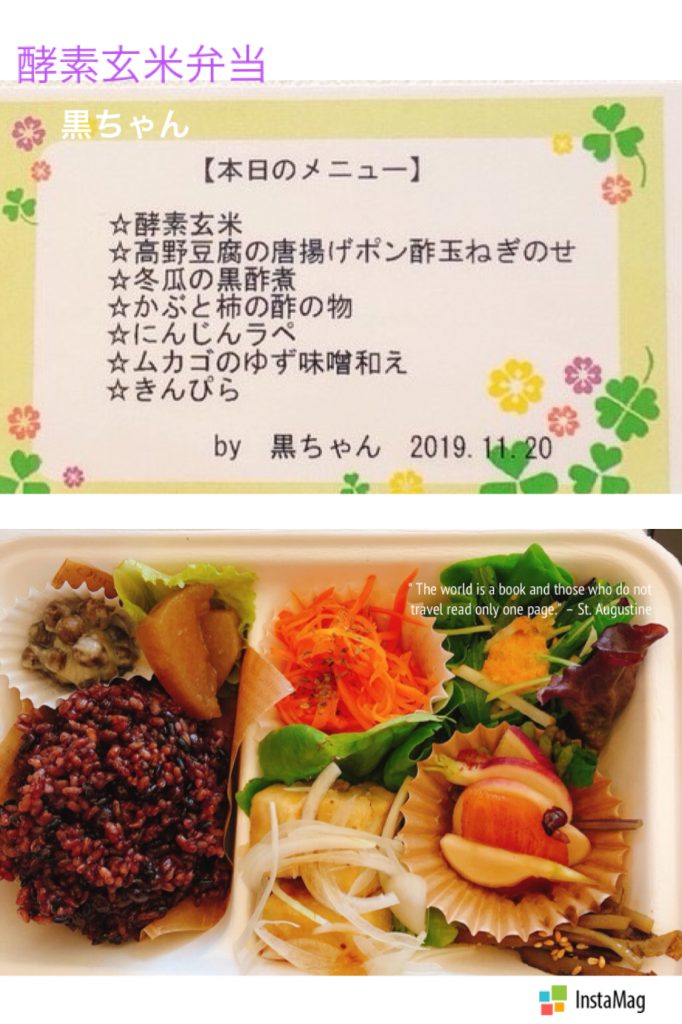 酵素玄米弁当
黒ちゃん
【本日のメニュー】
☆酵素玄米
☆高野豆腐の唐揚げポン酢玉ねぎのせ
☆冬瓜の黒酢煮
☆かぶと柿の酢の物
☆にんじんラペ
☆ムカゴのゆず味噌和え
☆きんぴら
by 黒ちゃん 2019.11.20
" The world is a book and those who do not
travel read only one page." – St. Augustine
InstaMag